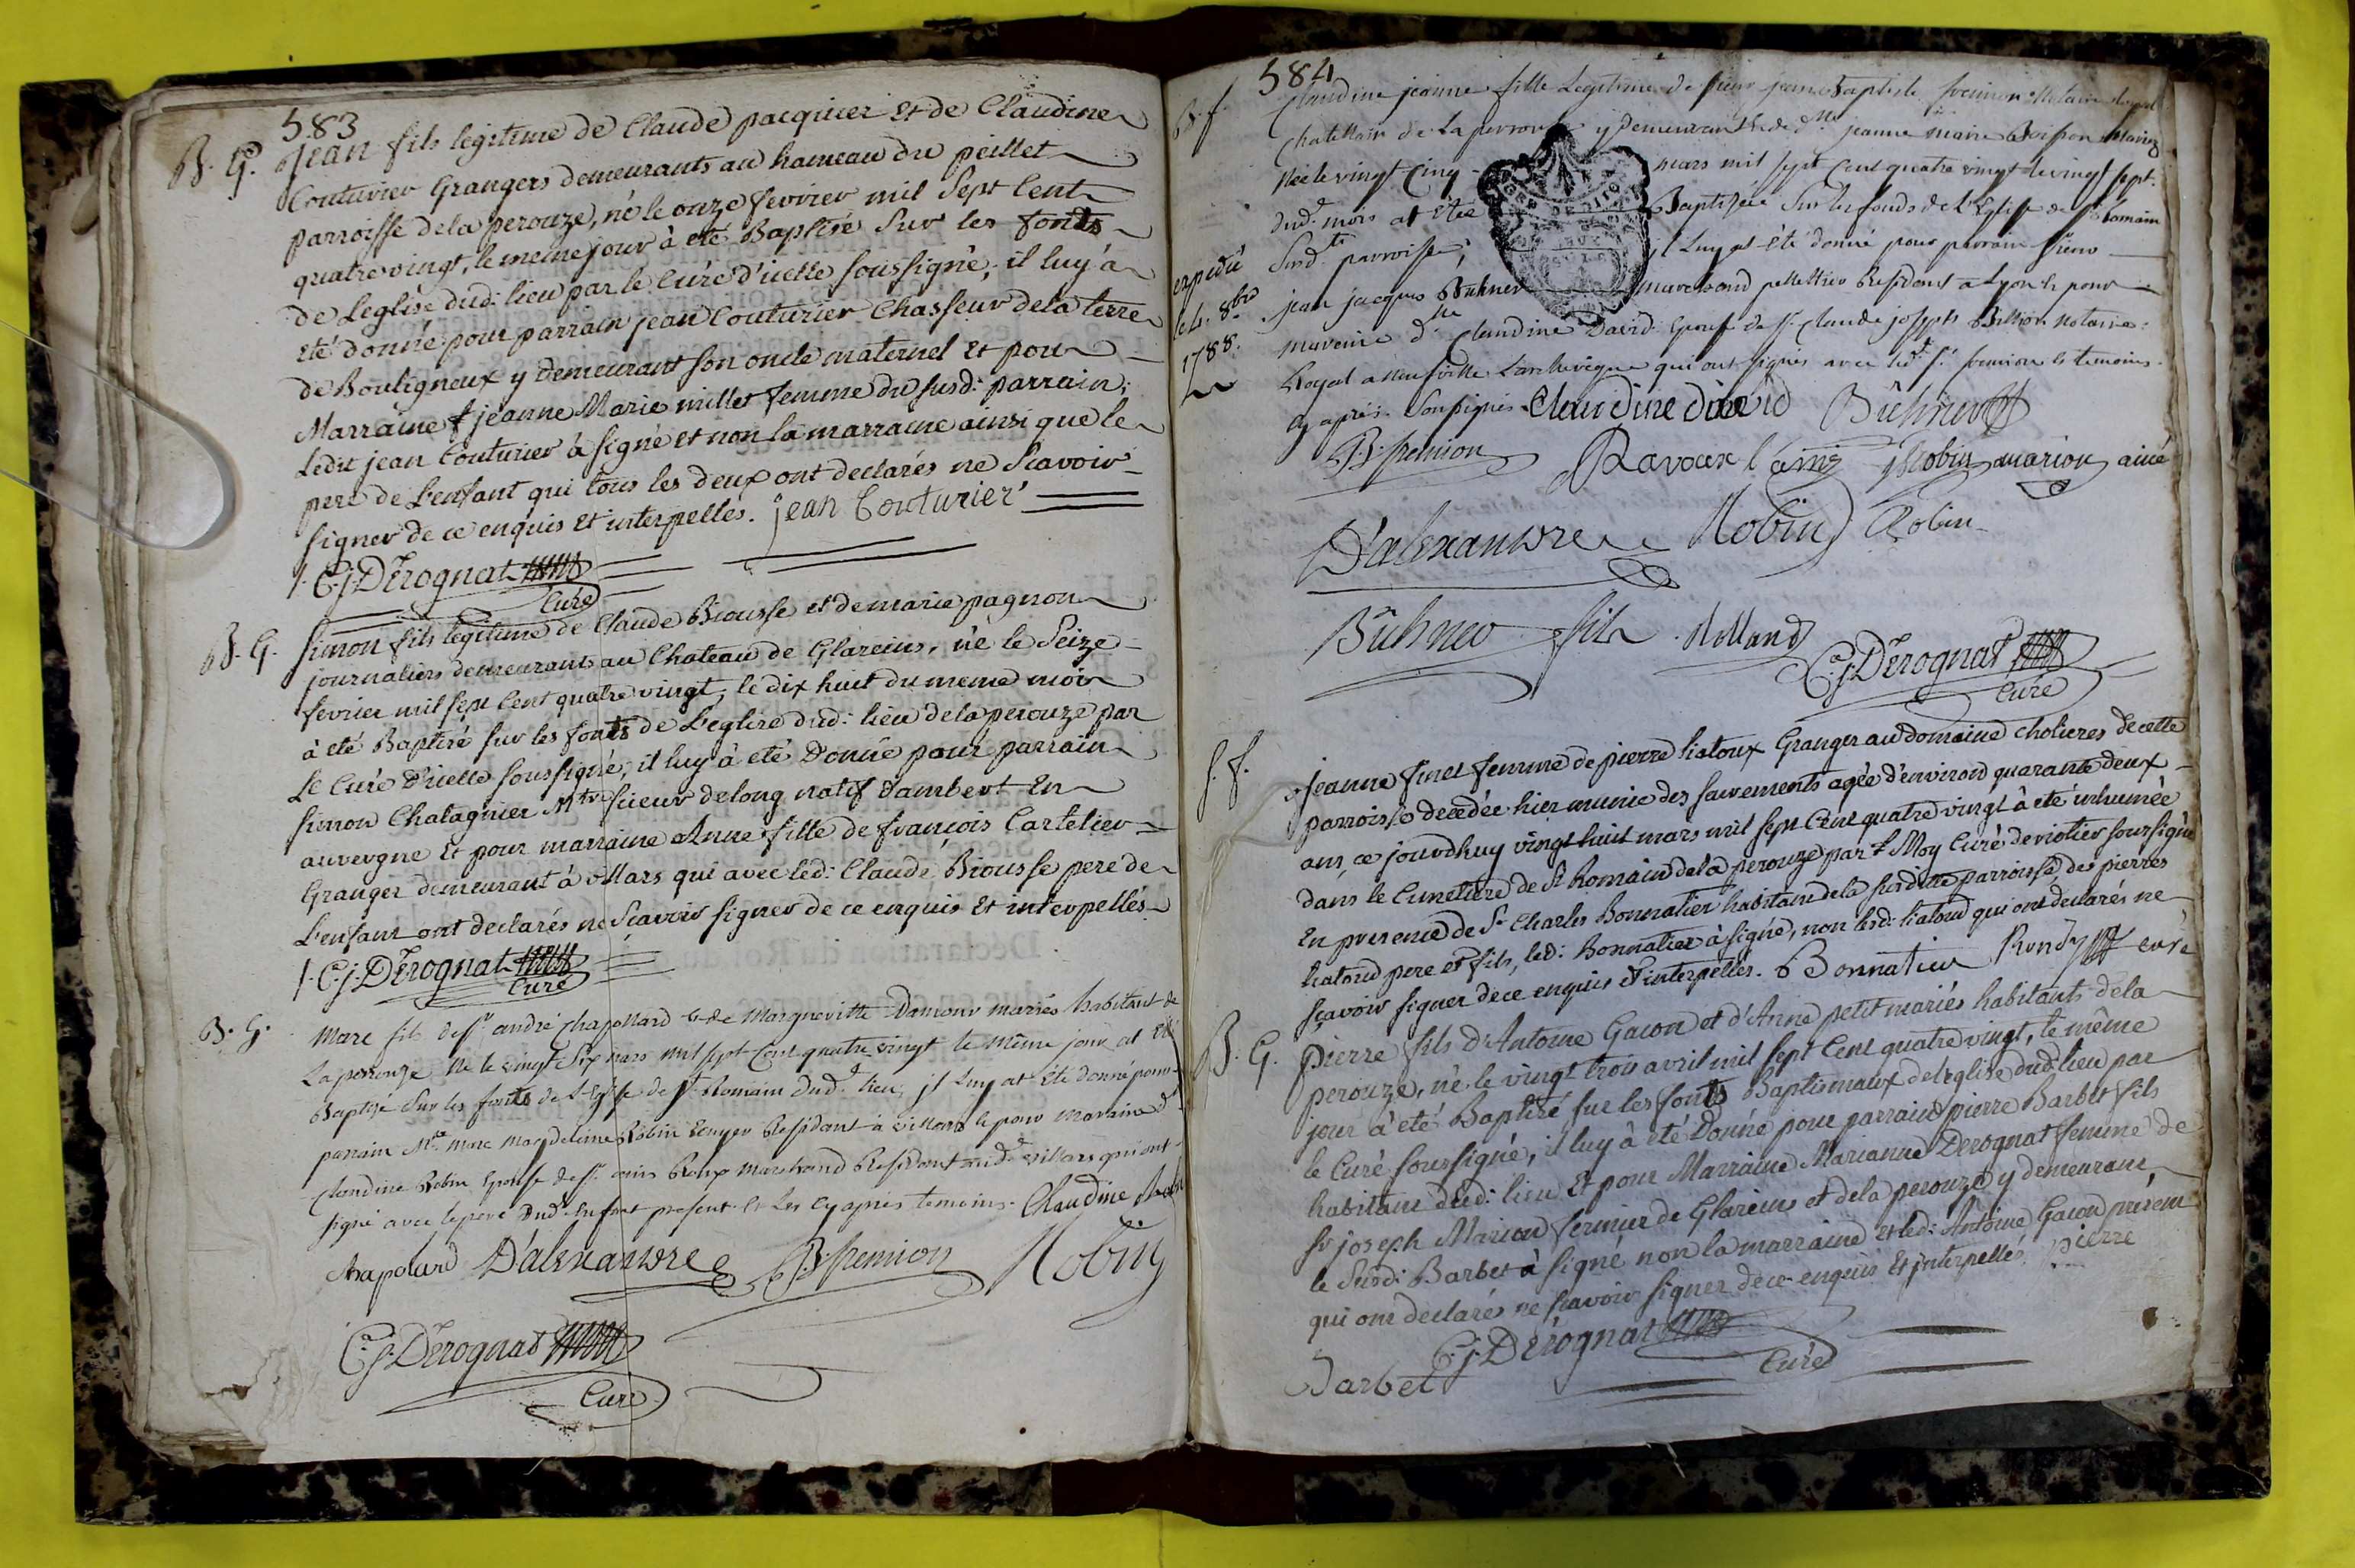 583
B. G. Jean fils legitime de Claude pacquier et de Claudine
Couturier Grangers demeurants au hameau du peillet
parroisse de la perouze, né le onze fevrier mil sept Cent
quatre vingt, le meme jour à eté Baptisé sur les fonts
de L'eglise dud: lieu par le Curé d'icelle soussigné; il luy à
eté donné pour parrain jean Couturier Chasseur de la terre
de Bouligneux y demeurant son oncle maternel et pour
Marraine jeanne Marie millet femme du susd: parrain;
Ledit jean Couturier à signé et non la marraine ainsi que le
pere de L'enfant qui tous les deux ont declarés ne Scavoir
signer de ce enquis et interpellés. jean Couturier
C. j. Dérognat
Curé
B. G. Simon fils legitime de Claude Biousse et de marie pagnon
journaliers demeurants au Chateau de Glareins, né le Seize
fevrier mil sept Cent quatre vingt, le dix huit du meme mois
à eté Baptisé sur les fonts de L'eglise dud: lieu de la perouze par
Le Curé d'icelle soussigné; il luy à eté Donné pour parrain
Simon Chatagnier Mtre scieur de long natif d'ambert en
auvergne et pour marraine Anne fille de françois Cartelier
Granger demeurant à villars qui avec led: Claude Biousse pere de
L'enfant ont declarés ne Scavoir signer de ce enquis et interpellés
C. j. Dérognat
Curé
B. G. Marc fils de Sr andré Chapollard & de Margueritte Damour mariés habitant de
La perouze Né le vingt Six mars mil sept Cent quatre vingt le même jour at eté
Baptisé Sur les fonts de L'Eglise de St Romain dud lieu; jl Luy at Eté donné pour
parrain Mre Marc Magdeleine Robin Ecuyer Residant à Villars & pour Marraine d
Claudine Robin Epouse de Sr Roux Marchand Residant aud Villars qui ont
signé avec le pere dud Enfant present & Les Cy après temoins. Claudine
Chapolard D'alexandre B. fremion Robin
C. j. Dérognat
Curé
584
B. f. Claudine jeanne fille Legitime de Sieur jean Baptiste fremion Notaire Royal
Chatellain de La perrouze y Demeurant & de dlle jeanne marie Boisson Mariez
Née le vingt Cinq mars mil sept Cent quatre vingt le vingt sept
dud mois at Eté Baptizée Sur les fonds de L'Eglise de St Romain
Susd parroisse, jl Luy at Eté donné pour parrain Sieur
expedié
le 4. 8bre
1788.
jean jacques Buhner marchand pelletier Residant a Lyon & pour
maraine dlle Claudine David Epouse de Sr Claude joseph Billion Notaire
Royal a neufville Larchevêque qui ont signés avec led Sr fremion & temoins
Cy après Soussignés. Claudine david Bühner
B. fremion Ravoux l'ainé Robin marion ainé
D'alexandre Robin Robin
Bühner fils Rolland
C. j. Dérognat
Curé
S. f. Jeanne finet femme de pierre liatoux Granger au domaine cholieres de cette
parroisse decedée hier munie des sacrements agée d'environ quarante deux
ans, ce jourdhuy vingt huit mars mil sept Cent quatre vingt à eté inhumée
dans le Cimetiere de St Romain de la perouze par Moy Curé de violier soussigné
En presence de Sr Charles Bonnatier habitant de la susditte parroisse, des pierres
liatoud pere et fils, led: Bonnatier à signé, non lesd: liatoud qui ont declarés ne
sçavoir signer de ce enquis et interpellés. Bonnatier Rondy curé
B. G. Pierre fils d'Antoine Gacon et d'Anne petit mariés habitants de la
perouze, né le vingt trois avril mil sept Cent quatre vingt, le même
jour à eté Baptisé sur les fonts Baptismaux de L'eglise dud: lieu par
le Curé soussigné, il luy à eté Donné pour parrain pierre Barbet fils
habitant dud: lieu et pour Marraine Marianne Derognat femme de
Sr joseph Marion fermier de Glareins et de la perouze y demeurant,
le Susd: Barbet à signé non la marraine et led: Antoine Gacon présent
qui ont declarés ne scavoir signer de ce enquis et interpellés. pierre
Barbet C. j. Dérognat
Curé